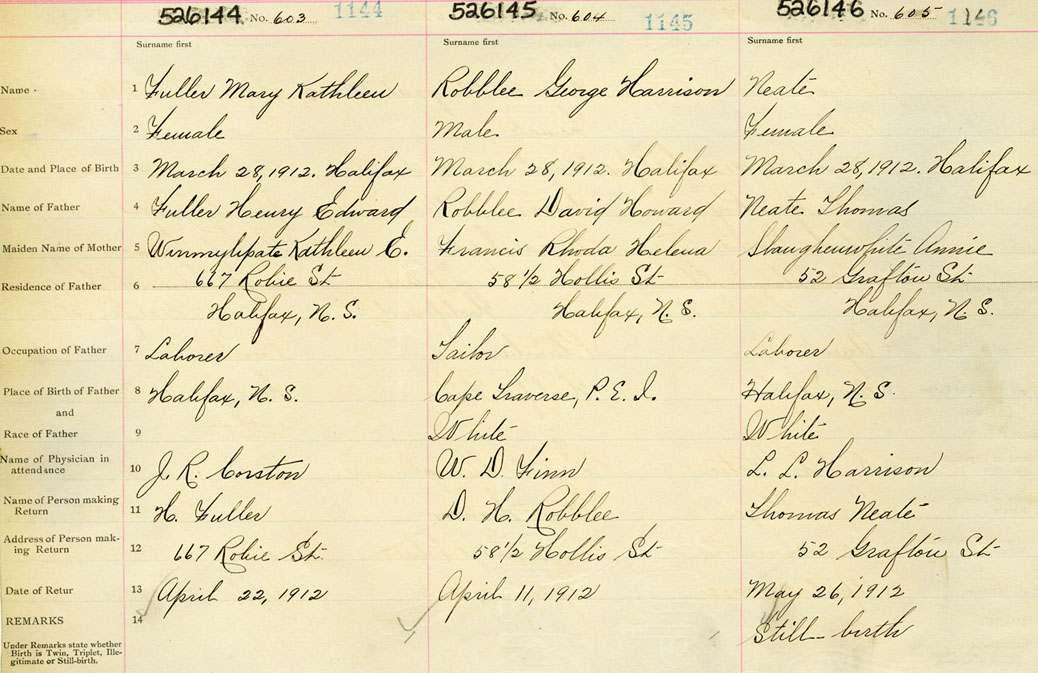 526144 No. 603 1144
526145 No. 604 1145
526146 No. 605 1146
Surname first Surname first Surname first
Name 1 Fuller Mary Kathleen Robblee George Harrison Neate
Sex 2 Female Male Female
Date and Place of Birth 3 March 28, 1912. Halifax March 28, 1912. Halifax March 28, 1912. Halifax
Name of Father 4 Fuller Henry Edward Robblee David Howard Neate Thomas
Maiden Name of Mother 5 Kathleen E. Francis Rhoda Helena Slaughenwhite Annie
Residence of Father 6 667 Robie St 58 1/2 Hollis St 52 Grafton St
Halifax, N.S. Halifax, N.S. Halifax, N.S.
Occupation of Father 7 Laborer Tailor Laborer
Place of Birth of Father 8 Halifax, N.S. Cape Traverse, P.E.I. Halifax, N.S.
and
Race of Father 9 White White
Name of Physician in attendance 10 J. R. Corston W. D. Finn L. L. Harrison
Name of Person making Return 11 H. Fuller D. H. Robblee Thomas Neate
Address of Person mak-ing Return 12 667 Robie St 58 1/2 Hollis St 52 Grafton St
Date of Retur 13 April 22, 1912 April 11, 1912 May 26, 1912
REMARKS 14 Still-birth
Under Remarks state whether
Birth is Twin, Triplet, Ille-
gitimate or Still-birth.